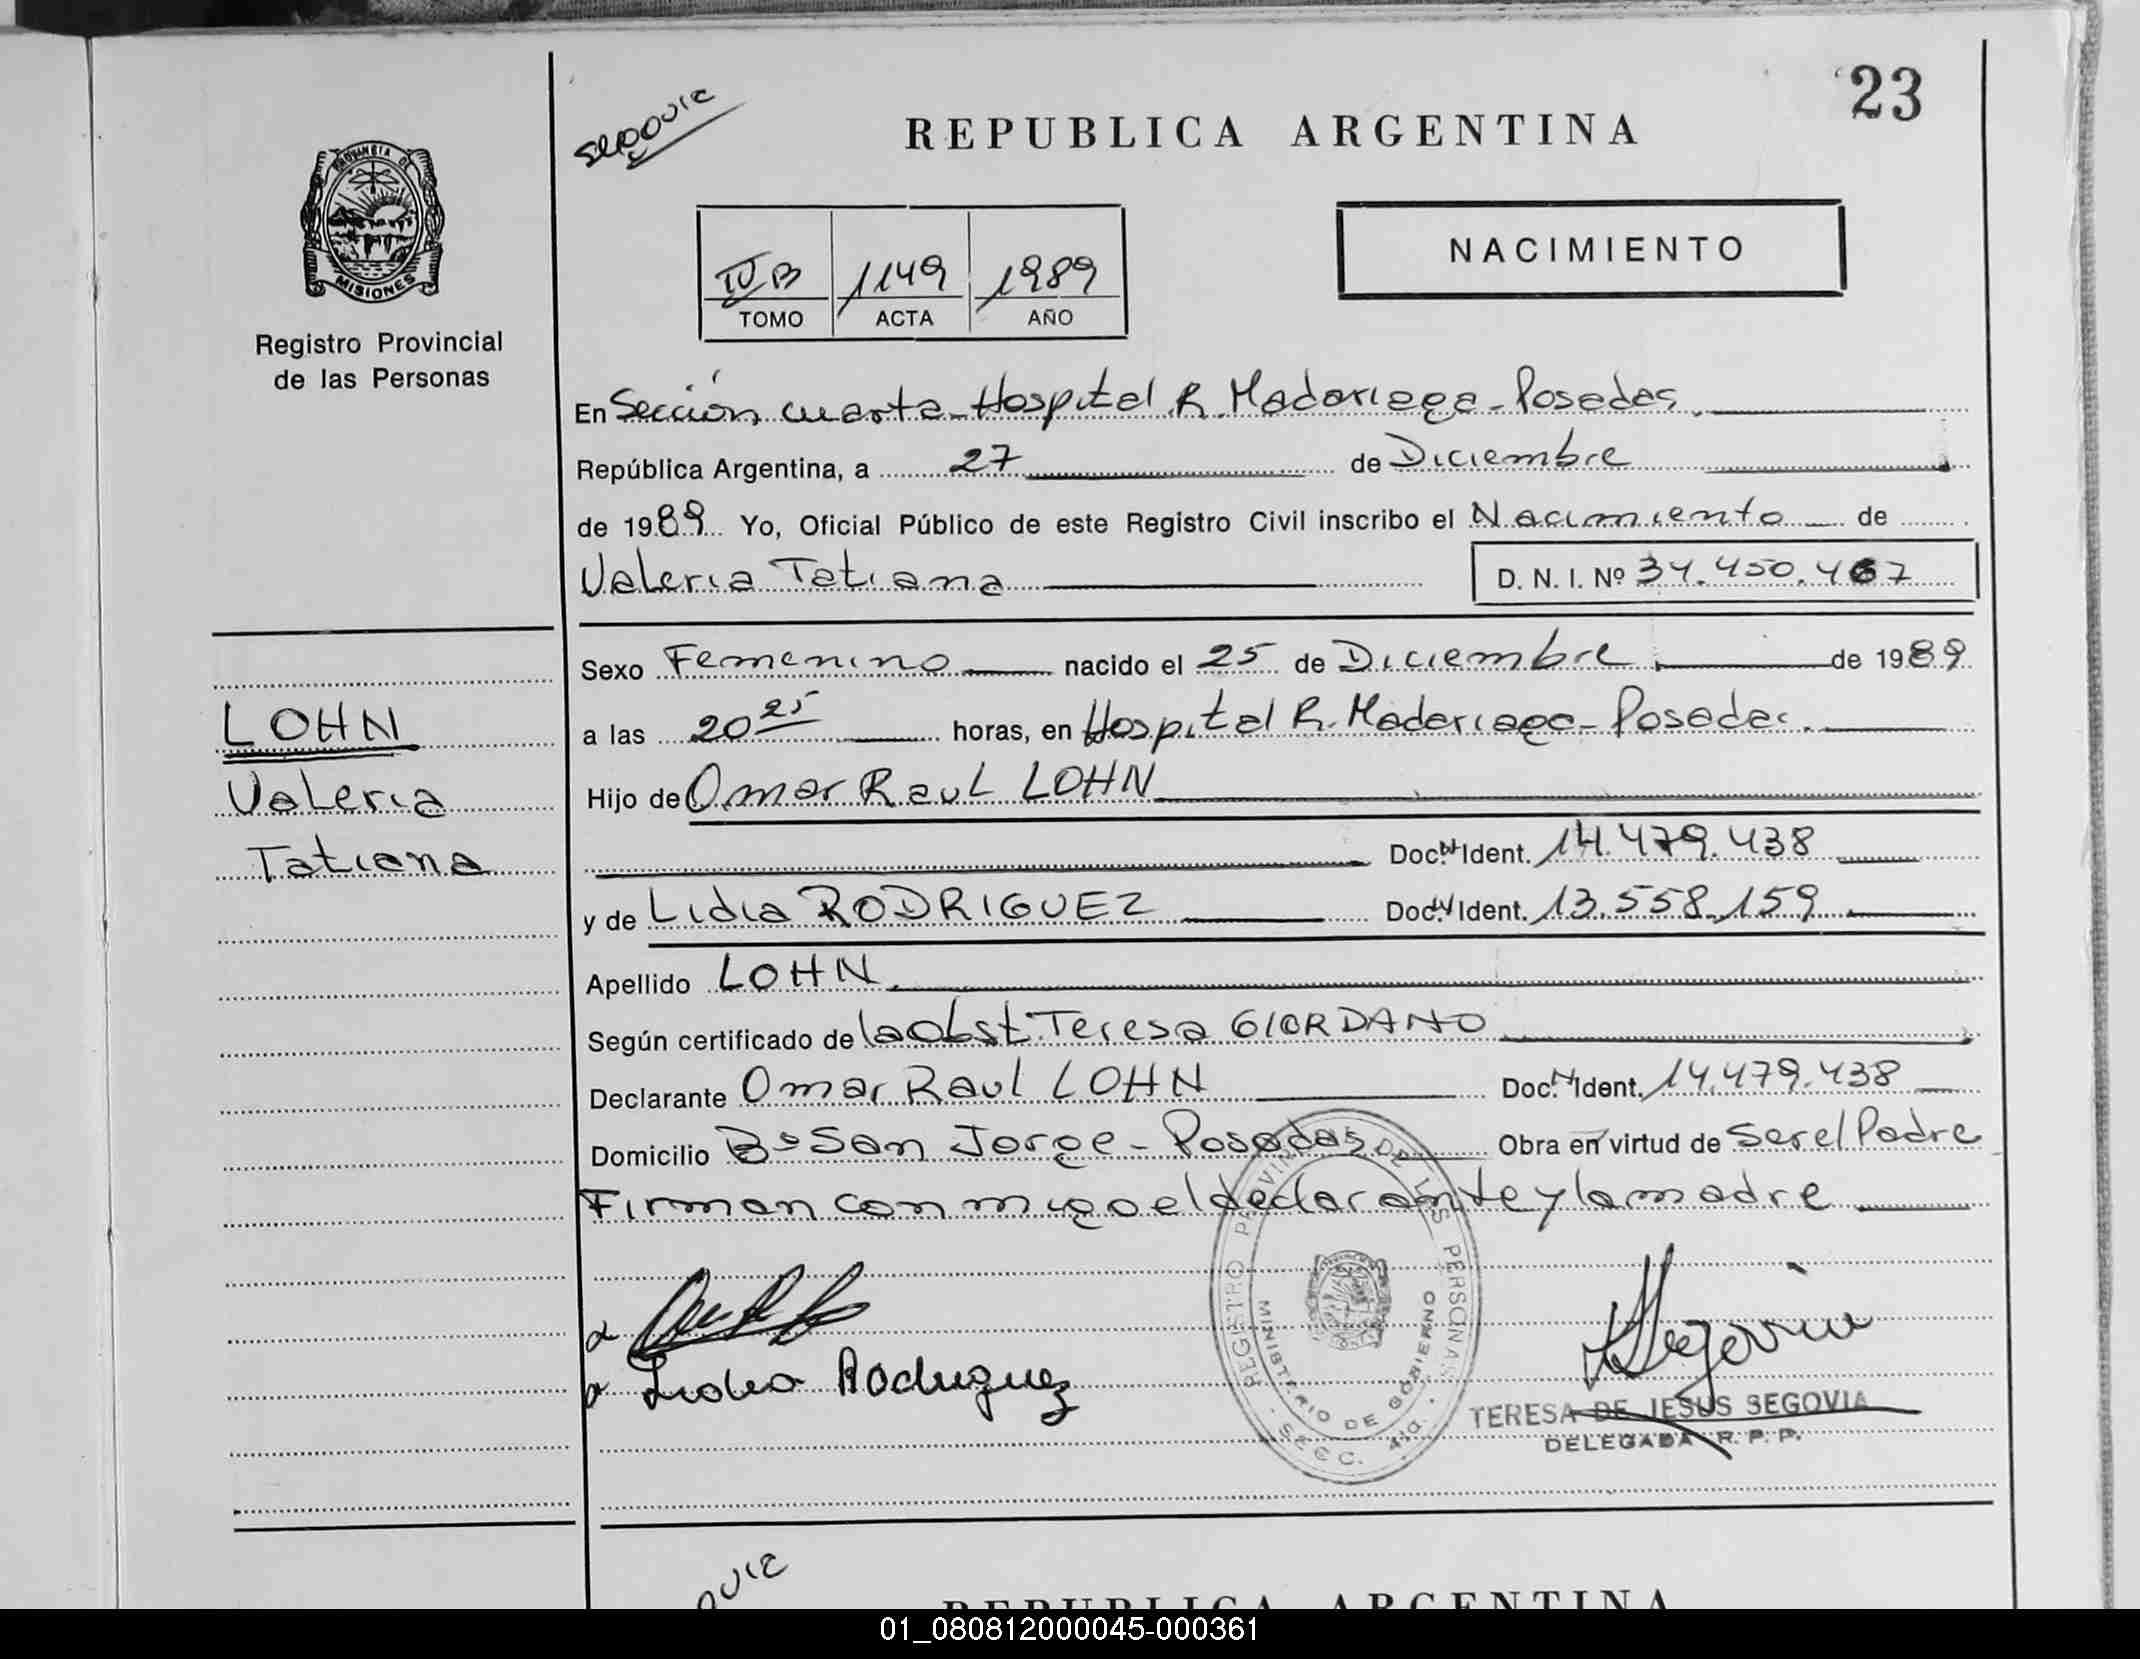 23
REPUBLICA ARGENTINA
PROVINCIA DE
MISIONES
Registro Provincial
de las Personas
NACIMIENTO
IV B 1149 1989
TOMO ACTA AÑO
En Sección cuarta - Hospital R. Madariaga - Posadas.
República Argentina, a 27 de Diciembre
de 1989 Yo, Oficial Público de este Registro Civil inscribo el Nacimiento de
Valeria Tatiana D. N. I. Nº 34.450.467
LOHN
Valeria
Tatiana
Sexo Femenino nacido el 25 de Diciembre de 1989
a las 20 25 horas, en Hospital R. Madariaga - Posadas.
Hijo de Omar Raul LOHN
Doc. N Ident. 14.479.438
y de Lidia RODRIGUEZ Doc. N Ident. 13.558.159
Apellido LOHN
Según certificado de la Obst. Teresa GIORDANO
Declarante Omar Raul LOHN Doc. N Ident. 14.479.438
Domicilio Bº San Jorge - Posadas Obra en virtud de Ser el Padre
Firman conmigo el declarante y la madre
Lidia Rodriguez
REGISTRO PROVINCIAL DE LAS PERSONAS
MINISTERIO DE GOBIERNO
SECC. 4ta.
Segovia
TERESA DE JESUS SEGOVIA
DELEGADA R. P. P.
REPUBLICA ARGENTINA
01_080812000045-000361